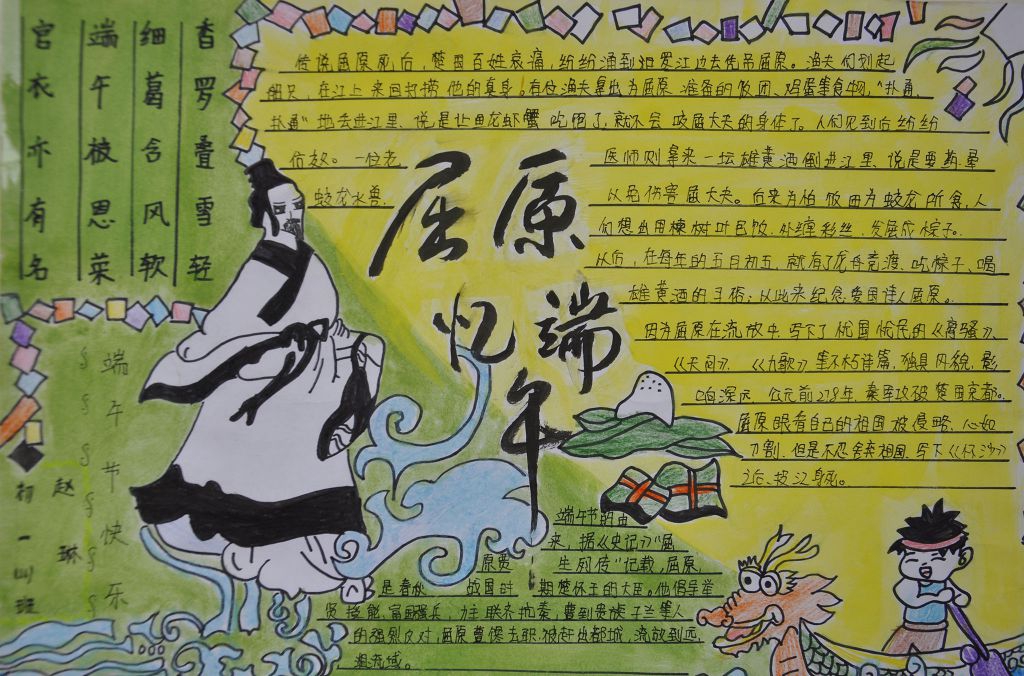 宫衣亦有名
端午被恩荣
细葛含风软
香罗叠雪轻
端午节快乐
赵琳
初一(4)班
屈原
忆端午
传说屈原死后，楚国百姓哀痛，纷纷涌到汨罗江边去凭吊屈原。渔夫们划起
船只，在江上来回打捞他的真身。有位渔夫拿出为屈原准备的饭团、鸡蛋等食物，“扑通、
扑通”地丢进江里、说是让鱼龙虾蟹吃饱了，就不会咬屈大夫的身体了。人们见到后纷纷
仿效。一位老
医师则拿来一坛雄黄酒倒进江里、说是要药晕
蛟龙水兽，
以免伤害屈大夫。后来为怕饭团为蛟龙所食，人
们想出用楝树叶包饭、外缠彩丝，发展成棕子。
以后，在每年的五月初五，就有了龙舟竞渡、吃粽子、喝
雄黄酒的习俗；以此来纪念爱国诗人屈原。
因为屈原在流放中，写下了忧国忧民的《离骚》、
《天问》、《九歌》等不朽诗篇，独具风貌，影
响深远 公元前278年，秦军攻破楚国京都。
屈原眼看自己的祖国被侵略、心如
刀割，但是不忍舍弃祖国，写下《怀沙》
之后，投江身死。
端午节的由
来，据《史记》“屈
原贾生列传”记载，屈原，
是春秋战国时期楚怀王的大臣。他倡导举
贤授能，富国强兵，力主联齐抗秦，遭到贵族子兰等人
的强烈反对，屈原遭馋去职，被赶出都城，流放到沅、
湘流域。